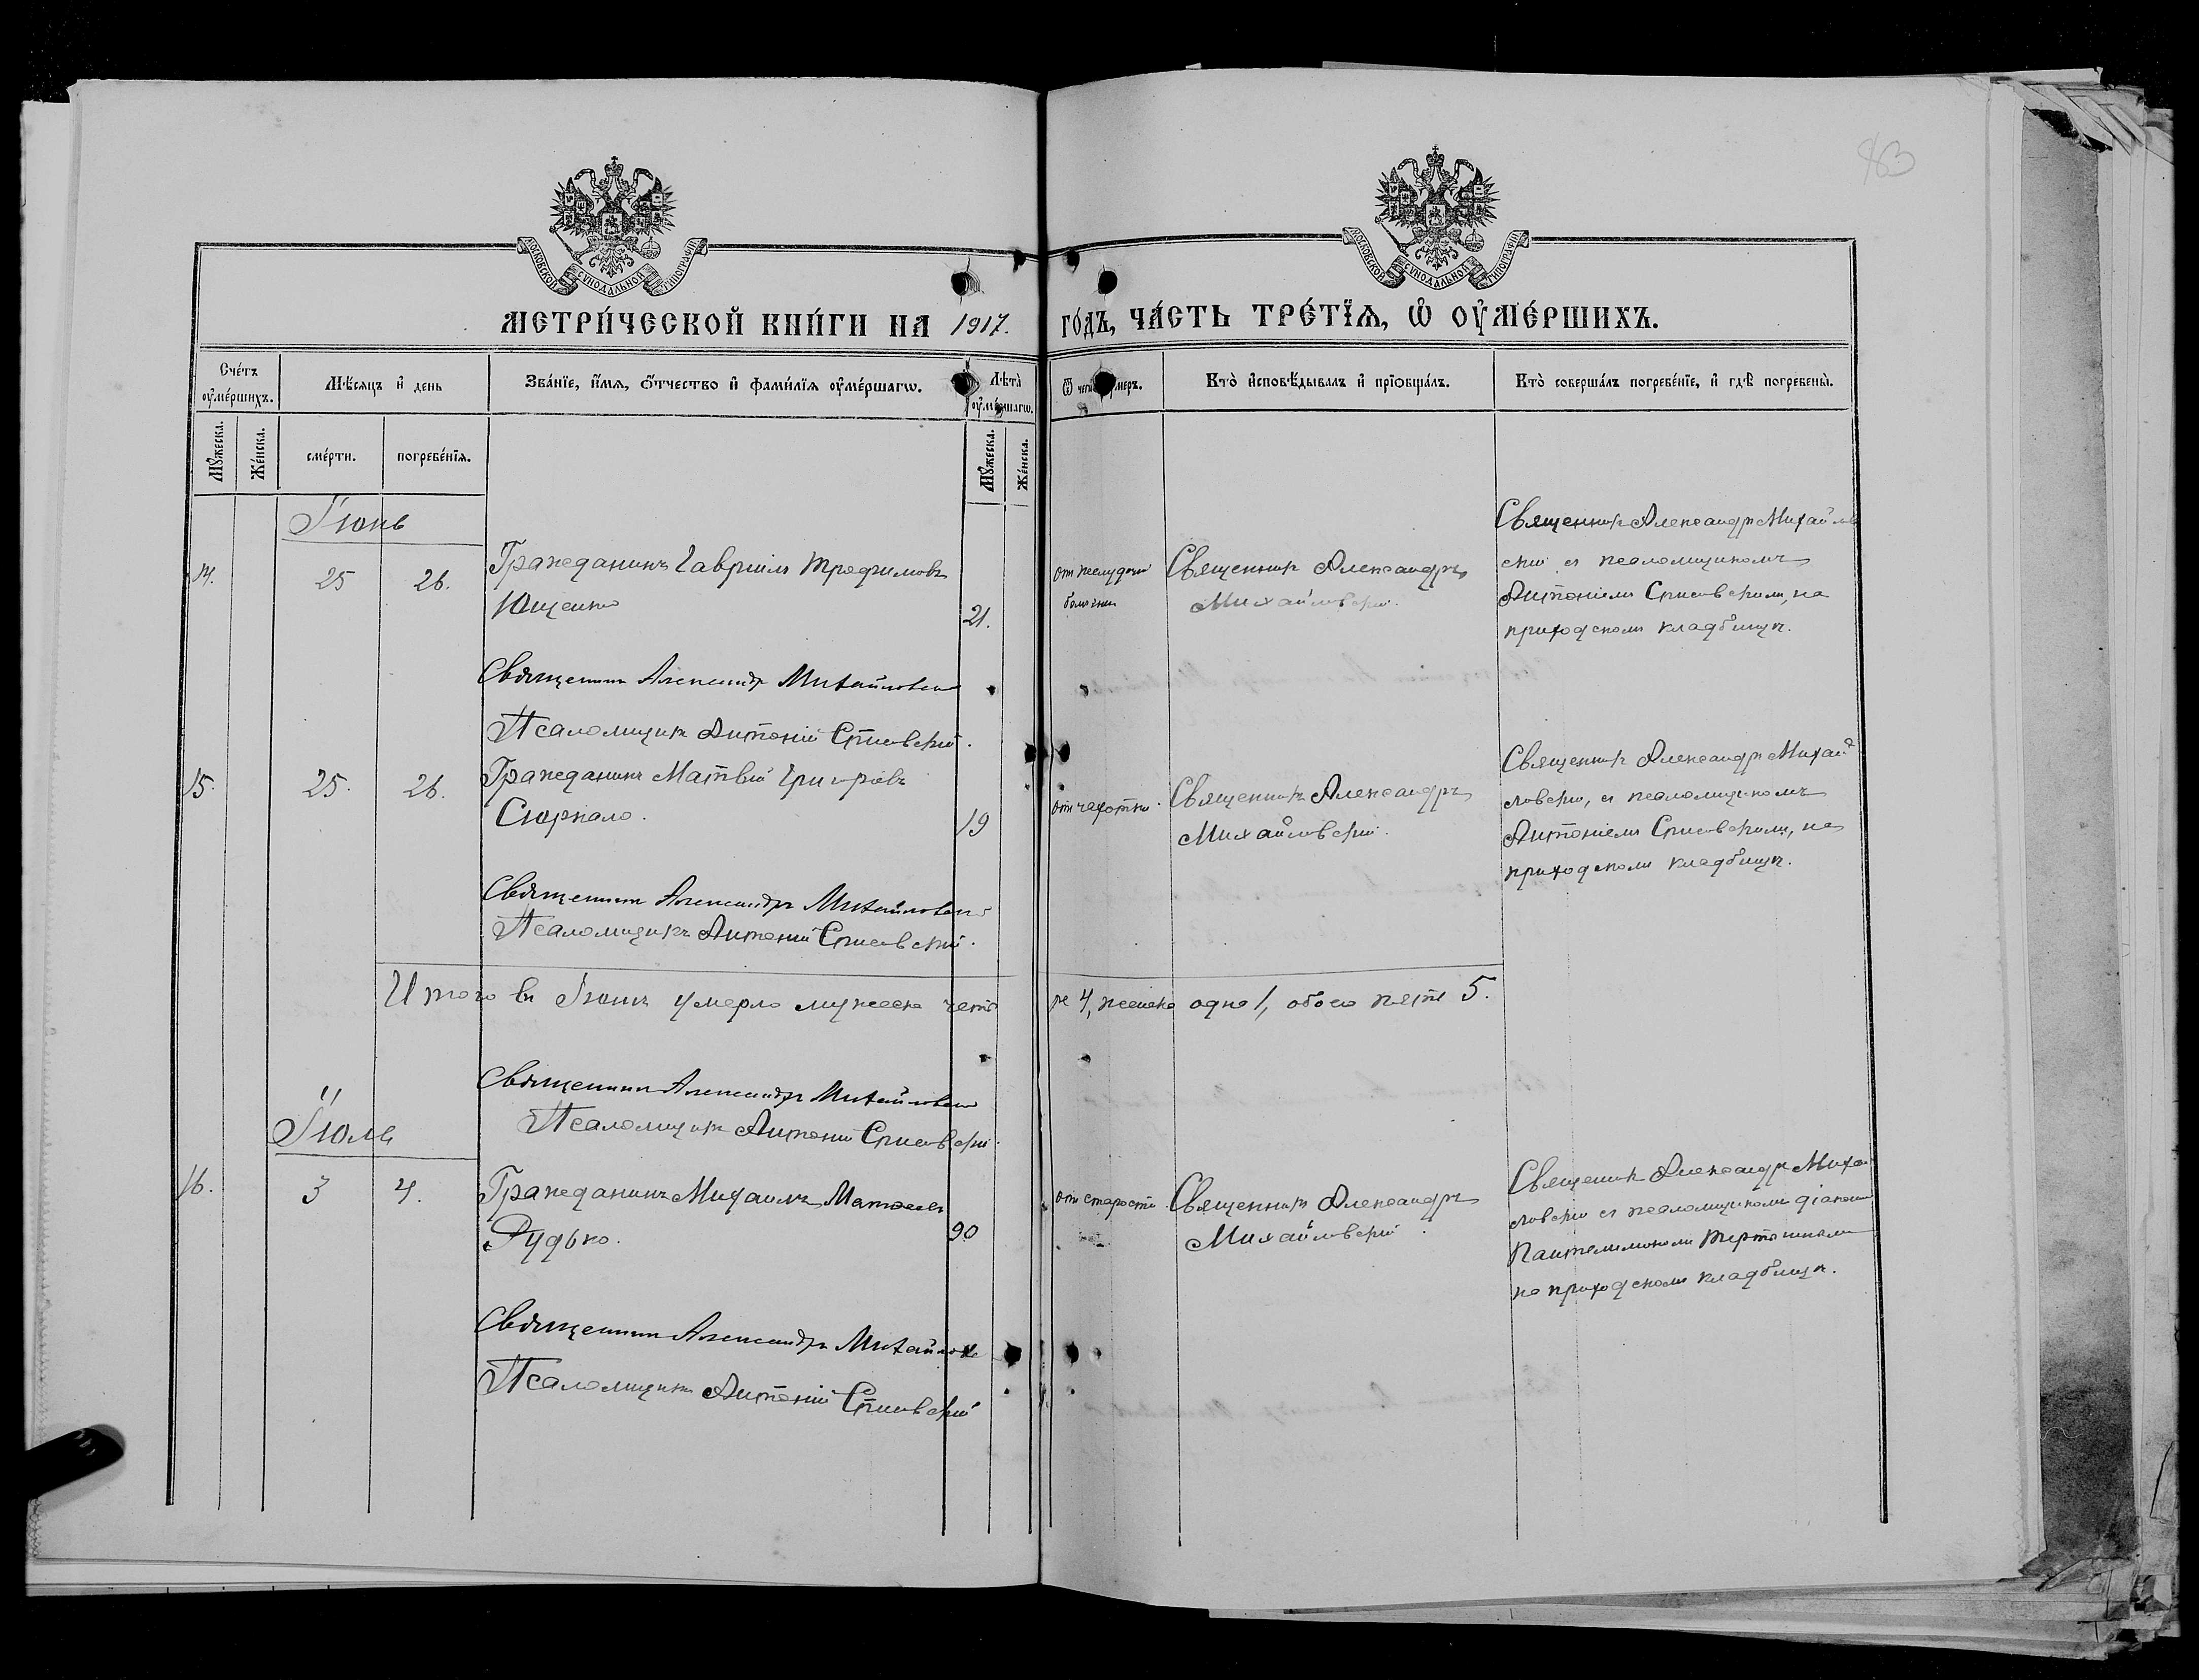 83
МОСКОВСКОЙ СѴНОДАЛЬНОЙ ТИПОГРАФІИ
МОСКОВСКОЙ СѴНОДАЛЬНОЙ ТИПОГРАФІИ
МЕТРИ́ЧЕСКОЙ КНИ́ГИ НА 1917. ГО́ДЪ, ЧА́СТЬ ТРЕ́ТЇѦ, Ѡ ОУ҆МЕ́РШИХЪ.
Сче́тъ оу҆ме́ршихъ.
Мѣ́сѧцъ и҆ день
Зва́нїе, и҆́мѧ, ѻ҆́тчество и҆ фами́лїѧ оу҆ме́ршагѡ.
Лѣ́та оу҆ме́ршагѡ.
Ѿ чегѡ̀ оу҆́меръ.
Кто̀ и҆сповѣ́дывалъ и҆ прїѻбща́лъ.
Кто̀ соверша́лъ погребе́нїе, и҆ гдѣ̀ погребены̀.
Мꙋ́жеска.
Же́нска.
сме́рти.
погребе́нїѧ.
Мꙋ́жеска.
Же́нска.
Іюнь
14. 25 26. Гражданинъ Гавріилъ Трофимовъ
Ющенко 21.
от желудочной
болезни
Священникъ Александръ
Михайловскій.
Священникъ Александръ Михайлов
скій съ псаломщикомъ
Антоніемъ Спасовскимъ, на
приходскомъ кладбищѣ.
Священникъ Александръ Михайловскій
Псаломщикъ Антоній Спасовскій.
15. 25. 26. Гражданинъ Матвій Григоріевъ
Сюркало. 19
отъ чахотки.
Священникъ Александръ
Михайловскій.
Священникъ Александръ Михай
ловскій, съ псаломщикомъ
Антоніемъ Спасовскимъ, на
приходскомъ кладбищѣ.
Священникъ Александръ Михайловскій
Псаломщикъ Антоній Спасовскій.
Итого въ Іюнѣ умерло мужеска четы
ре 4, женска одна 1, обоего пять 5.
Священникъ Александръ Михайловскій
Псаломщикъ Антоній Спасовскій.
Іюль
16. 3 4. Гражданинъ Михаилъ Матѳеевъ
Рудько. 90
отъ старости.
Священникъ Александръ
Михайловскій.
Священникъ Александръ Михай
ловскій съ псаломщикомъ діакономъ
Пантелимономъ
на приходскомъ кладбищѣ.
Священникъ Александръ Михайловскій
Псаломщикъ Антоній Спасовскій